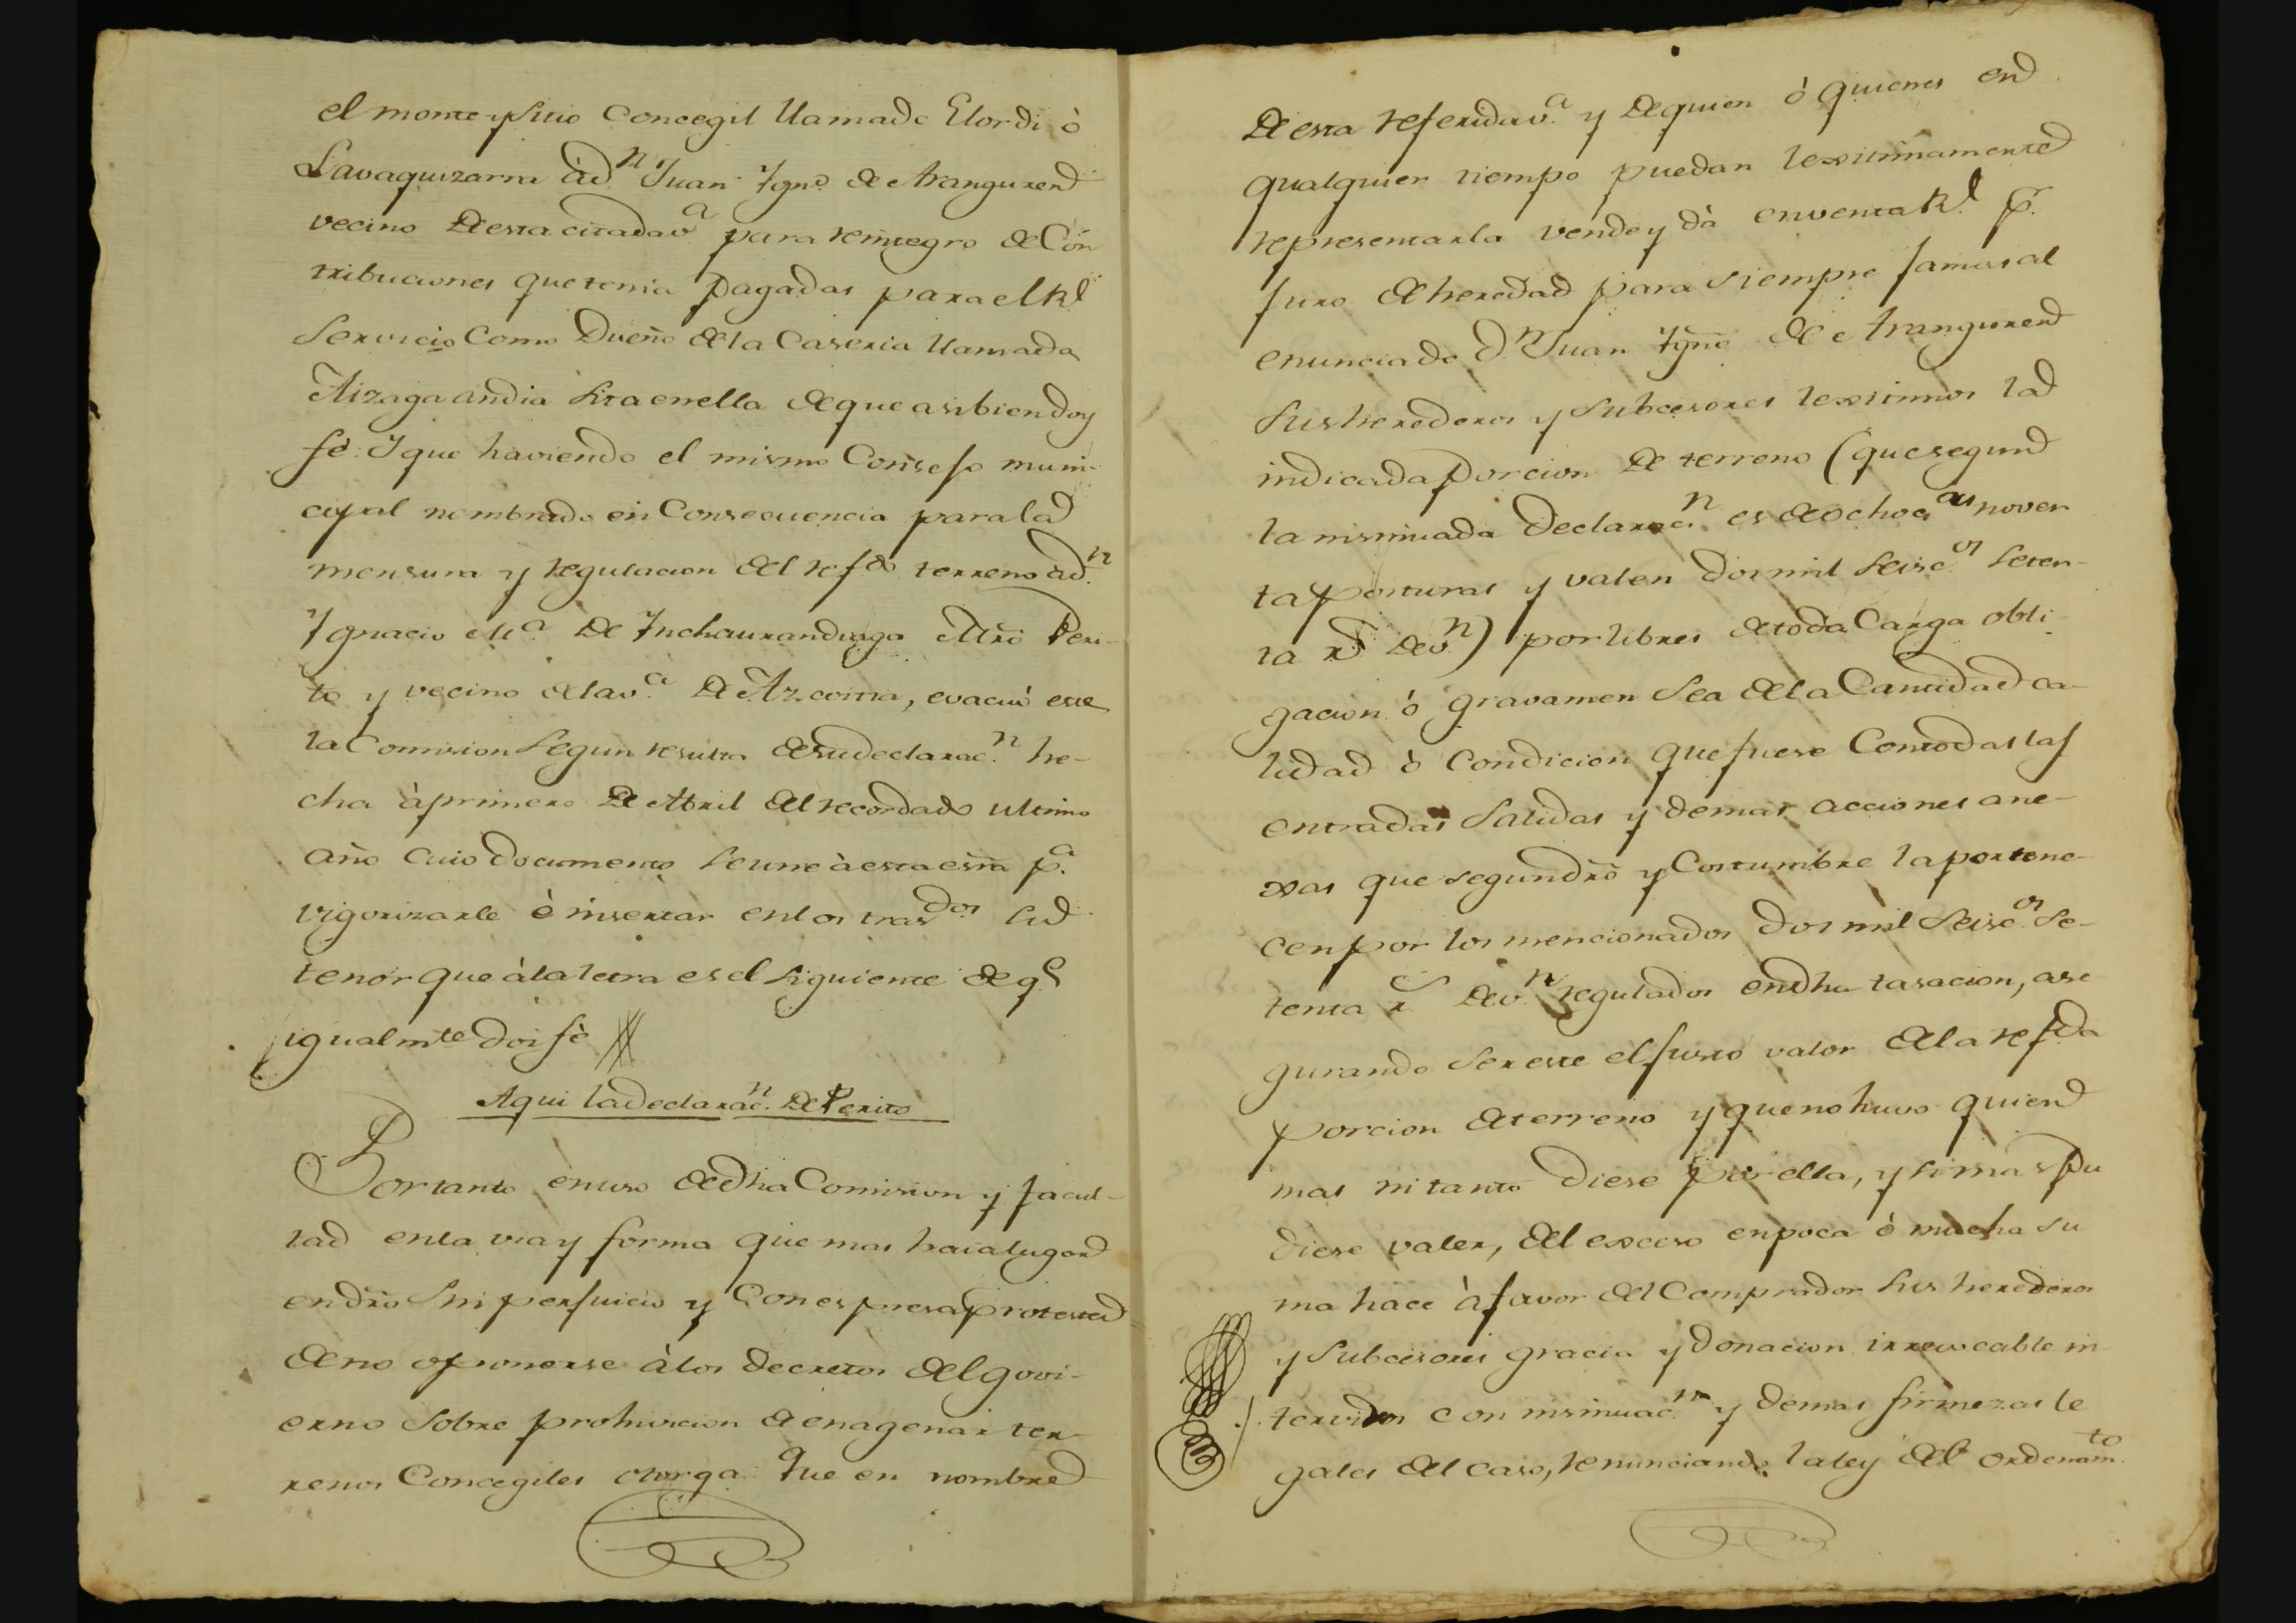 el monte y sitio Concegil llamado Elordi ò
Lavaquizarra à Dn Juan Ygno de Aranguren
vecino de esta citada va para reintegro de Con
tribuciones que tenia pagadas para el Rl
Servicio como Dueño de la Caseria llamada
Aizaga andia sita en ella de que asibien doy
fé: Y que haviendo el mismo Consejo muni-
cipal nombrado en Consecuencia para la
mensura y regulacion del refdo terreno à Dn
Ygnacio Ma de Ynchaurandiaga Mro Peri-
to y vecino de la va de Azcoitia, evacuò este
la Comision segun resulta de su declaracn he-
cha à primero de Abril del recordado ultimo
año cuio documento se une à esta esra pa
vigorizarle è insertar en los trasdos su
tenor que à la letra es el siguiente de ql
igualmte doi fè
Aqui la Declaracn de Perito
Portanto en uso de dha Comision y facul-
tad en la via y forma que mas haia lugar
en dro sin perjuicio y con espresa protesta
de no oponerse à los decretos del govi-
erno sobre prohivicion de enagenar ter-
renos Concegiles otorga: Que en nombre
de esta referida va y de quien ò quienes en
qualquier tiempo puedan lexitimamente
representarla vende y dà en venta Rl pr
juro de heredad para siempre jamas al
enunciado Dn Juan Ygno de Aranguren
sus herederos y subcesores lexitimos la
indicada porcion de terreno (que segun
la insinuada Declaracn es de ochoctas noven
ta posturas y valen dos mil seiscos seten-
ta rs de vn) por libres de toda Carga obli-
gacion ò gravamen sea de la Cantidad ca-
lidad ò condicion que fuere con todas las
entradas salidas y demas acciones ane-
xas que segun dro y Costumbre la pertene-
cen por los mencionados dos mil seiscos se-
tenta rs de vn regulados en dha tasacion, ase
gurando ser este el justo valor de la refda
porcion de terreno y que no huvo quien
mas ni tanto diese por ella, y si mas pu
diese valer, del exceso en poca ò mucha su
ma hace à favor del Comprador sus herederos
y subcesores gracia y donacion irrevocable in-
tervivos con insinuacn y demas firmezas le
gales del caso, renunciando la ley del ordenamto